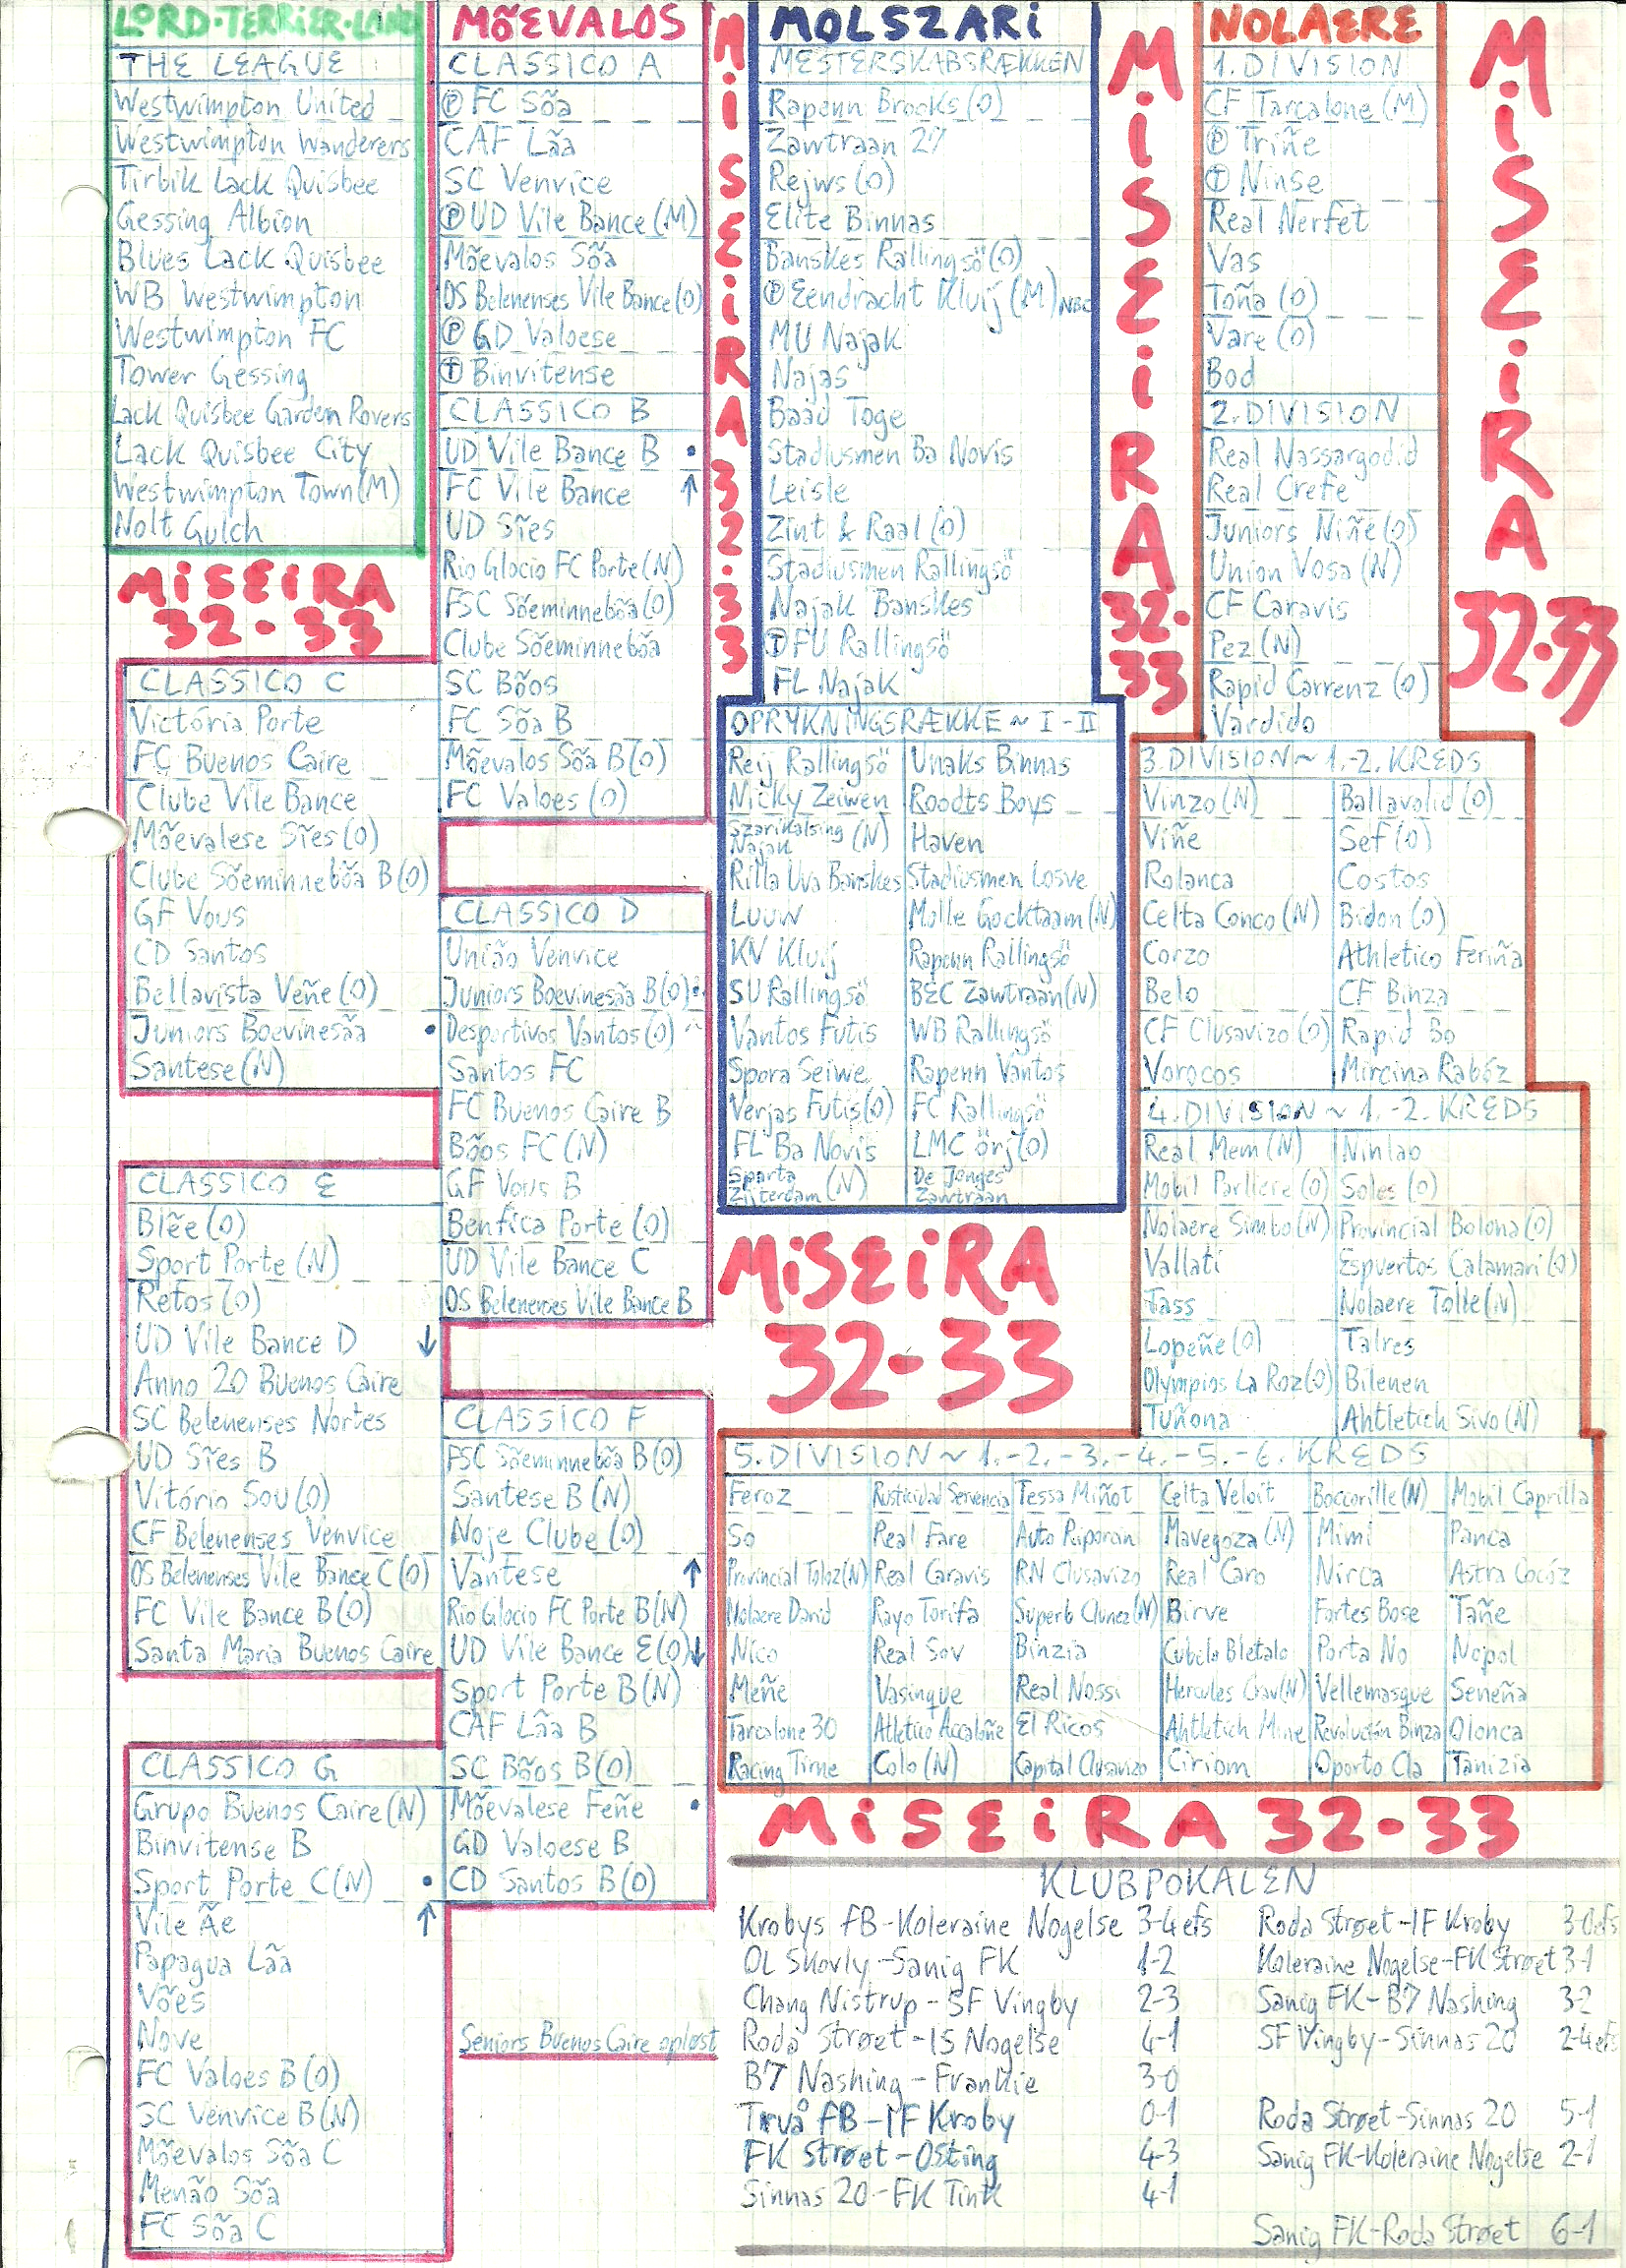 LORD-TERRIER-LAND
THE LEAGUE
Westwimpton United
Westwimpton Wanderers
Tirbik Lack Quisbee
Gessing Albion
Blues Lack Quisbee
WB Westwimpton
Westwimpton FC
Tower Gessing
Lack Quisbee Garden Rovers
Lack Quisbee City
Westwimpton Town (M)
Nolt Gulch
MISEIRA
32-33
MÕEVALOS
CLASSICO A
Ⓟ FC Sõa
CAF Lãa
SC Venvice
Ⓟ UD Vile Bance (M)
Mõevalos Sõa
OS Belenenses Vile Bance (O)
Ⓟ GD Valoese
Ⓣ Binvitense
CLASSICO B
UD Vile Bance B •
FC Vile Bance ↑
UD Sĩes
Rio Glocio FC Porte (N)
FSC Sõeminnebõa (O)
Clube Sõeminnebõa
SC Bõos
FC Sõa B
Mõevalos Sõa B (O)
FC Valoes (O)
CLASSICO C
Victória Porte
FC Buenos Caire
Clube Vile Bance
Mõevalese Sĩes (O)
Clube Sõeminnebõa B (O)
GF Vous
CD Santos
Bellavista Veñe (O)
Juniors Boevinesãa •
Santese (N)
CLASSICO D
União Venvice
Juniors Boevinesãa B (O) •
Desportivos Vantos (O)
Santos FC
FC Buenos Caire B
Bõos FC (N)
GF Vous B
Benfica Porte (O)
UD Vile Bance C
OS Belenenses Vile Bance B
CLASSICO E
Blẽe (O)
Sport Porte (N)
Retos (O)
UD Vile Bance D ↓
Anno 20 Buenos Caire
SC Belenenses Nortes
UD Sĩes B
Vitório Sou (O)
CF Belenenses Venvice
OS Belenenses Vile Bance C (O)
FC Vile Bance B (O)
Santa Maria Buenos Caire
CLASSICO F
FSC Sõeminnebõa B (O)
Santese B (N)
Noje Clube (O)
Vantese ↑
Rio Glocio FC Porte B (N)
UD Vile Bance E (O) ↓
Sport Porte B (N)
CAF Lãa B
SC Bõos B (O)
Mõevalese Feñe •
GD Valoese B
CD Santos B (O)
CLASSICO G
Grupo Buenos Caire (N)
Binvitense B
Sport Porte C (N) •
Vile Ãe ↑
Papagua Lãa
Vões
Nove
FC Valoes B (O)
SC Venvice B (N)
Mõevalos Sõa C
Menão Sõa
FC Sõa C
Seniors Buenos Caire opløst
MISEIRA 32-33
MOLSZARI
MESTERSKABSRÆKKEN
Rapenn Brooks (O)
Zawtraan 27
Rejws (O)
Elite Binnas
Banskes Rallingsö (O)
Ⓟ Eendracht Kluij (M) NBC
MU Najak
Najas
Baad Toge
Stadiusmen Ba Novis
Leisle
Zint & Raal (O)
Stadiusmen Rallingsö
Najak Banskes
Ⓣ FU Rallingsö
FL Najak
OPRYKNINGSRÆKKE ~ I - II
Reij Rallingsö Unaks Binnas
Nicky Zeiwen Roodts Boys
Szarikalsing Najak (N) Haven
Rilla Uva Banskes Stadiusmen Losve
LUUW Molle Gocktaam (N)
KV Kluij Rapenn Rallingsö
SU Rallingsö BEC Zawtraan (N)
Vantos Futis WB Rallingsö
Spora Seiwe Rapenn Vantos
Verjas Futis (O) FC Rallingsö
FL Ba Novis LMC Örj (O)
Sparta Zijterdam (N) De Jonges Zawtraan
MISEIRA
32-33
MISEIRA
32-33
NOLAERE
1. DIVISION
CF Tarcalone (M)
Ⓟ Triñe
Ⓣ Ninse
Real Nerfet
Vas
Toña (O)
Vare (O)
Bod
2. DIVISION
Real Nassargodid
Real Crefe
Juniors Niñe (O)
Union Vosa (N)
CF Caravis
Pez (N)
Rapid Carrenz (O)
Vardido
3. DIVISION ~ 1.-2. KREDS
Vinzo (N) Ballavalid (O)
Viñe Sef (O)
Rolanca Costos
Celta Conco (N) Bidon (O)
Corzo Athletico Feriña
Belo CF Binza
CF Clusavizo (O) Rapid Bo
Vorocos Mircina Rabóz
4. DIVISION ~ 1.-2. KREDS
Real Mem (N) Ninlao
Mobil Parllere (O) Soles (O)
Nolaere Simbo (N) Provincial Bolona (O)
Vallati Espuertos Calamari (O)
Tass Nolaere Tolle (N)
Lopeñe (O) Talres
Olympios La Roz (O) Bilenen
Tuñona Ahtletich Sivo (N)
5. DIVISION ~ 1.-2.-3.-4.-5.-6. KREDS
Feroz Rusticidad Servencia Tessa Miñot Celta Veloit Boccorille (N) Mobil Caprilla
So Real Fare Auto Riporan Mavegoza (N) Mimi Panca
Provincial Toloz (N) Real Caravis RN Clusavizo Real Caro Nirca Astra Cocóz
Nolaere David Rayo Torifa Superb Clunez (N) Birve Fortes Bose Tañe
Nico Real Sov Binzia Cubila Bletalo Porta No Nopol
Meñe Vasinque Real Nossi Hercules Crav (N) Vellemasque Seneña
Tarcalone 30 Athletico Accaloñe El Ricos Ahtletich Mine Revolución Binza Olonca
Racing Tirne Colo (N) Capital Clusavizo Ciriom Oporto Cla Tanizia
MISEIRA
32-33
MISEIRA 32-33
KLUBPOKALEN
Krobys fB-Koleraine Nogelse 3-4efs
OL Skovly-Sanig FK 1-2
Chang Nistrup-SF Vingby 2-3
Roda Strøet-IS Nogelse 4-1
B7 Nashing-Frankie 3-0
Trvå fB-IF Kroby 0-1
FK Strøet-Osting 4-3
Sinnas 20-FK Tink 4-1
Roda Strøet-IF Kroby 3-0efs
Koleraine Nogelse-FK Strøet 3-1
Sanig FK-B7 Nashing 3-2
SF Vingby-Sinnas 20 2-4efs
Roda Strøet-Sinnas 20 5-1
Sanig FK-Koleraine Nogelse 2-1
Sanig FK-Roda Strøet 6-1